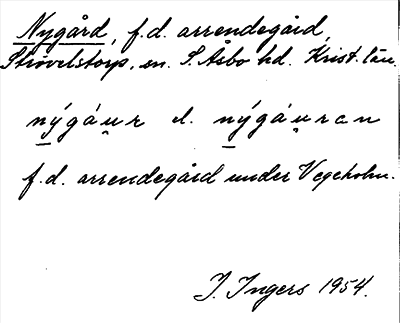 Nygård, f.d. arrendegård,
Strövelstorp, sn. S. Åsbo hd. Krist. län.
nýgáu̯r el. nýgáu̯ran
f.d. arrendegård under Vegeholm.
I. Ingers 1954.